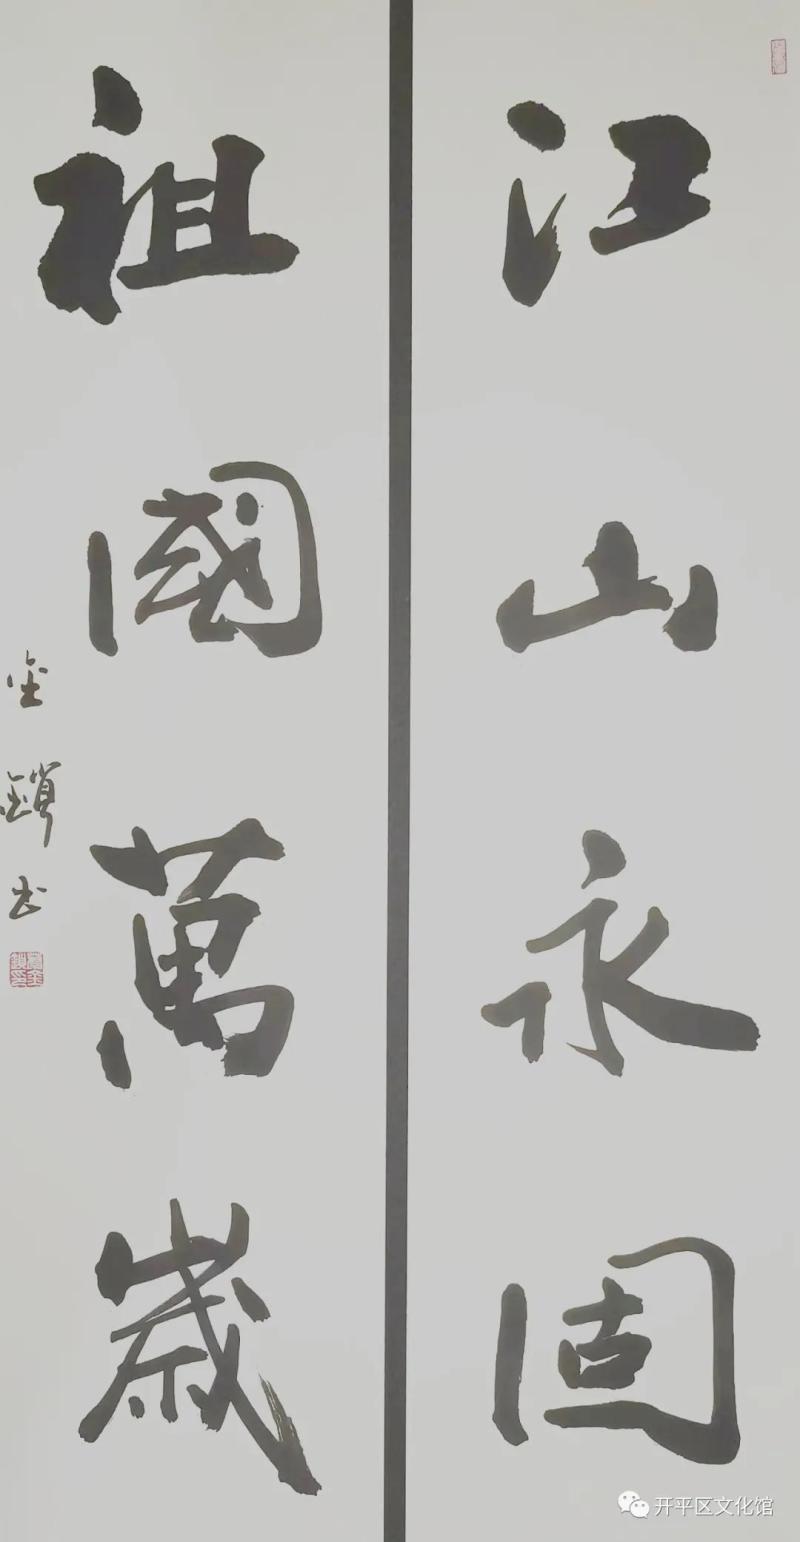 江山永固
祖國萬歲
金鎖书
开平区文化馆